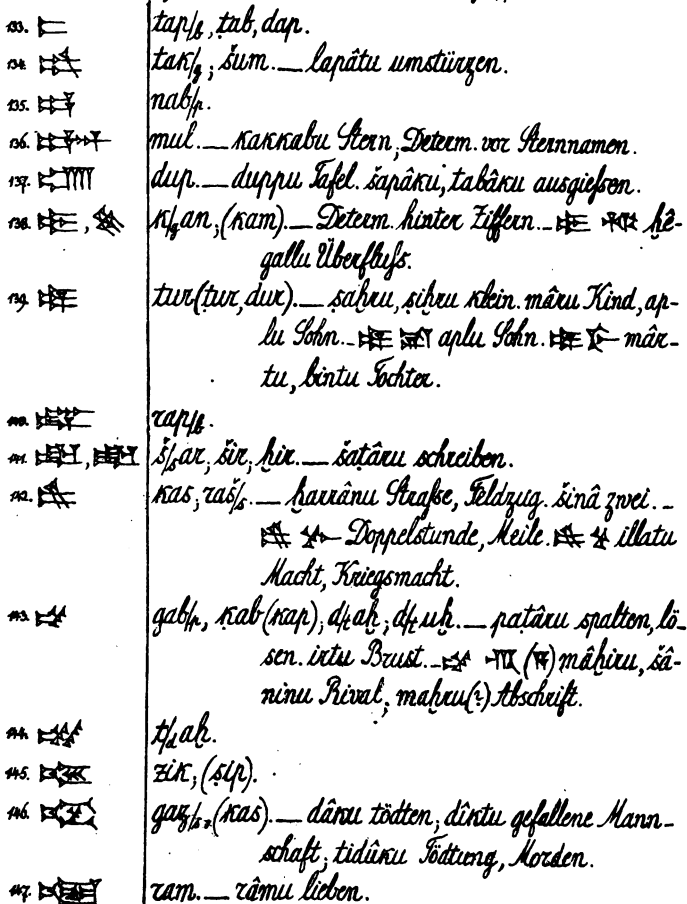 133. 𒋰 tap/b, ṭab, dap.
134. tak/g; šum. — lapâtu umstürzen.
135. nab/p.
136. mul. — kakkabu Stern, Determ. vor Sternnamen.
137. dup. — duppu Tafel. šapâku, tabâku ausgießen.
138. k/gan, (kam). — Determ. hinter Ziffern. — ḫê-
gallu Überfluß.
139. tur (ṭur, dur). — ṣaḫru, ṣiḫru klein. mâru Kind, ap-
lu Sohn. — aplu Sohn. mâr-
tu, bintu Tochter.
140. rap/b.
141. š/sar; šir; ḫir. — šaṭâru schreiben.
142. kas; raš/s. — ḫarrânu Straße, Feldzug. šinâ zwei. —
Doppelstunde, Meile. illatu
Macht, Kriegsmacht.
143. gab/p, ḳab (kap); d/ṭaḫ; d/ṭuḫ. — paṭâru spalten, lö-
sen. irtu Brust. — ( ) mâḫiru, šâ-
ninu Rival; maḫru(?) Abschrift.
144. t/daḫ.
145. zik; (ṣip).
146. gaz/s, (kas). — dâku tödten; dîktu gefallene Mann-
schaft; tidûku Tödtung, Morden.
147. ram. — râmu lieben.